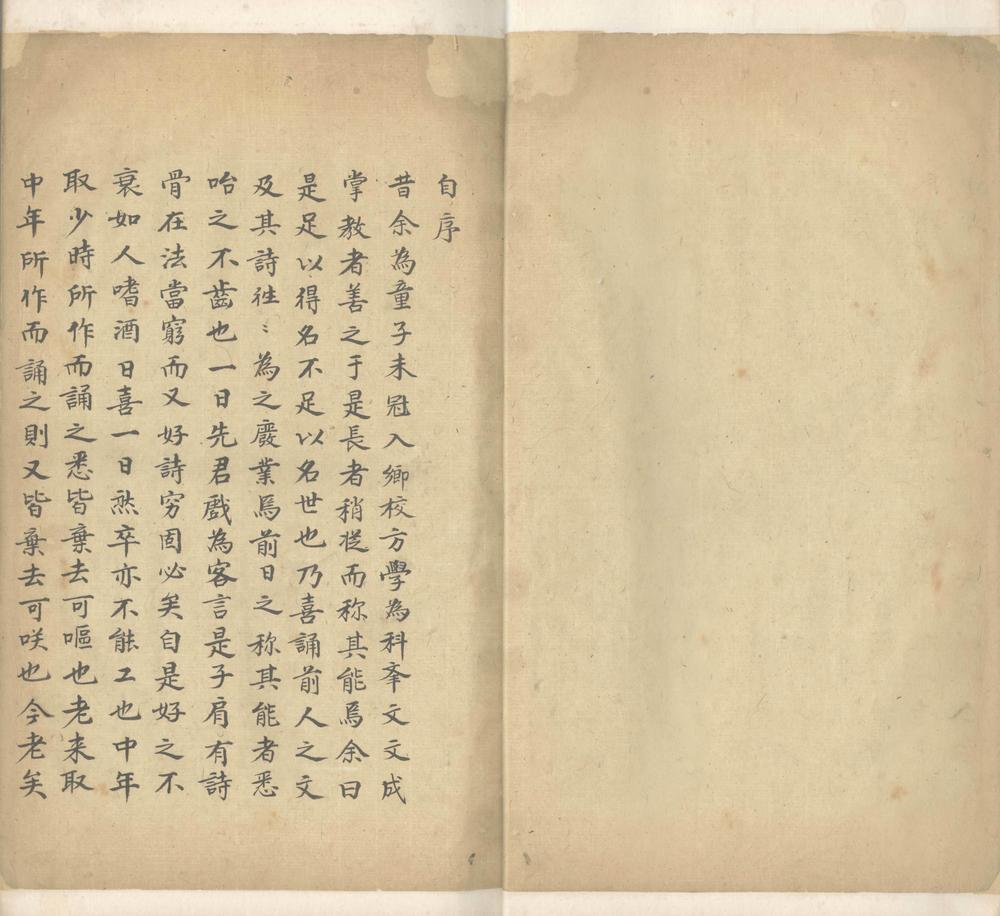 自序
昔余為童子未冠入鄉校方學為科举文文成
掌教者善之于是長者稍從而称其能焉余曰
是足以得名不足以名世也乃喜誦前人之文
及其詩徃〻為之廢業焉前日之称其能者悉
咍之不齒也一日先君戲為客言是子肩有詩
骨在法當窮而又好詩穷固必矣自是好之不
衰如人嗜酒日喜一日然卒亦不能工也中年
取少時所作而誦之悉皆棄去可嘔也老来取
中年所作而誦之則又皆棄去可咲也今老矣